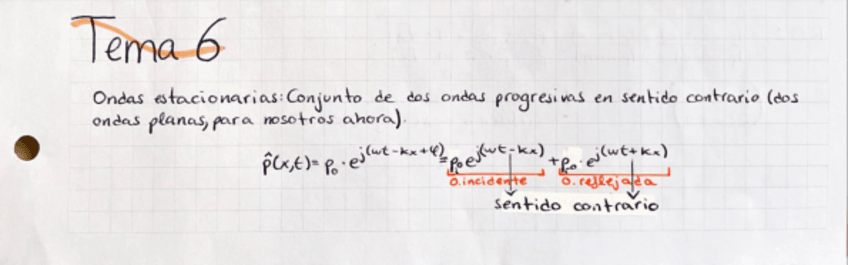 Tema 6
Ondas estacionarias: Conjunto de dos ondas progresivas en sentido contrario (dos
ondas planas, para nosotros ahora).
p̂(x,t) = p₀ · e^j(ωt-kx+φ) = p₀ e^j(ωt-kx) + p₀ · e^j(ωt+kx)
O. incidente O. reflejada
sentido contrario